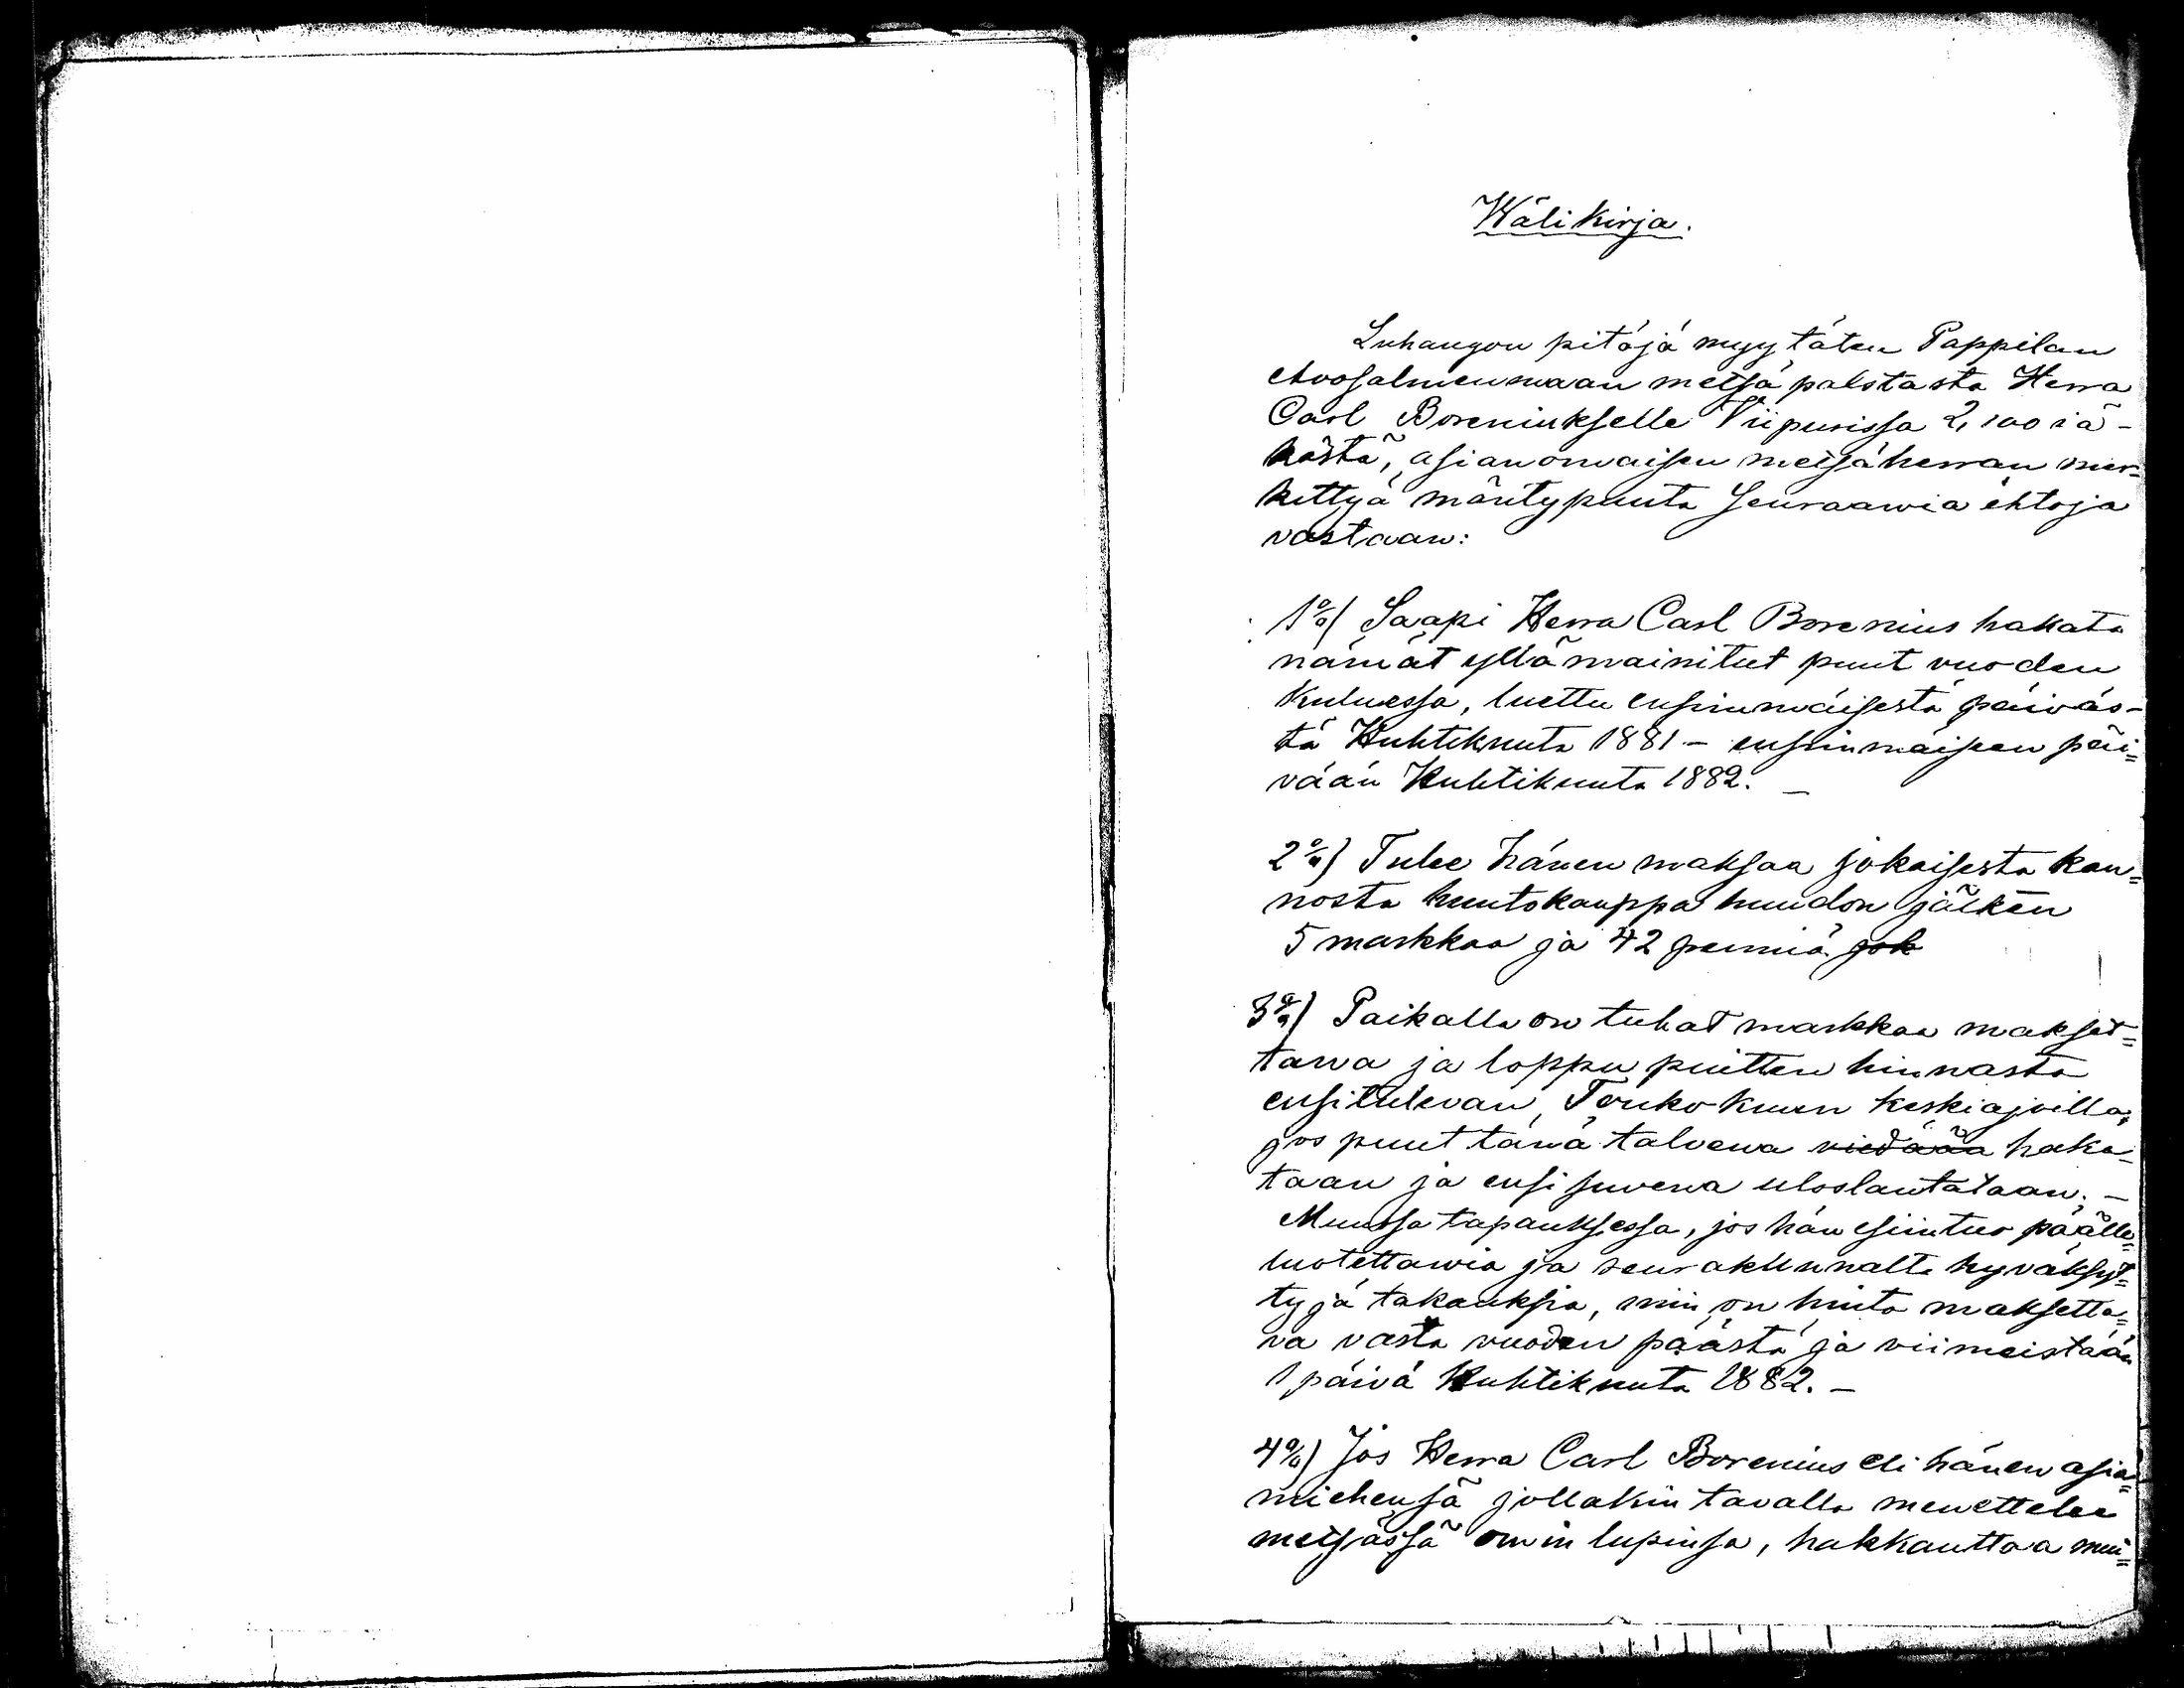 Wälikirja.
Luhangon pitäjä myy täten Pappilan
Avosalmenmaan metsä palstasta Herra
Carl Boreniukselle Viipurissa 2,100 iä-
kästä, asianomaisen metsäherran mer=
kettyä mäntypuuta seuraawia ehtoja
vastaan:
1%) Saapi Herra Carl Borenius hakata
nämät yllämainitut puut vuoden
kuluessa, luettu ensinmäisestä päiväs-
tä Huhtikuuta 1881 – ensinmäiseen päi=
vään Huhtikuuta 1882. –
2%) Tulee hänen maksaa jokaisesta kan=
nosta huutokauppa huudon jälkeen
5 markkaa ja 42 penniä jok
3%) Paikalla on tuhat markkaa makset=
tawa ja loppu puitten hinnasta
ensitulevan Toukokuun keskiajoilla,
jos puut tänä talvena viedään haka-
taan ja ensi suvena uloslautataan. –
Muussa tapauksessa, jos hän esiintuo päälle=
luotettawia ja seurakunnalta hyväksyt=
tyjä takauksia, niin on hinta maksetta=
va vasta vuoden päästä ja viimeistään
1 päivä Huhtikuuta 1882. –
4%) Jos Herra Carl Borenius eli hänen asia=
miehensä jollakin tavalla menettelee
metsässä omin lupinsa, hakkauttaa mui=